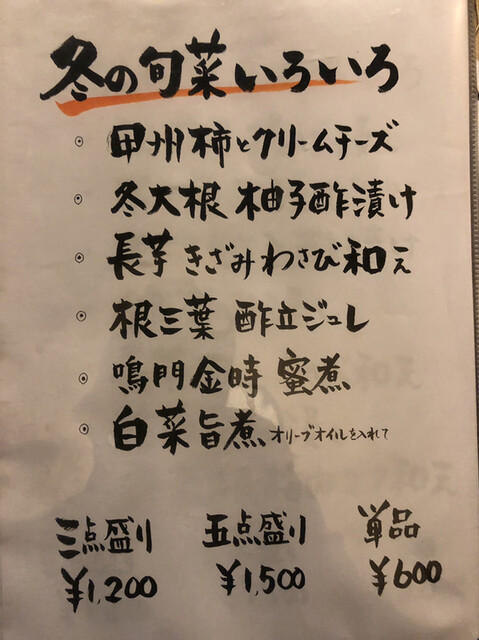 冬の旬菜いろいろ
甲州柿とクリームチーズ
冬大根 柚子酢漬け
長芋 きざみわさび和え
根三葉 酢立ジュレ
鳴門金時 蜜煮
白菜旨煮 オリーブオイルを入れて
三点盛り 五点盛り 単品
¥1,200 ¥1,500 ¥600